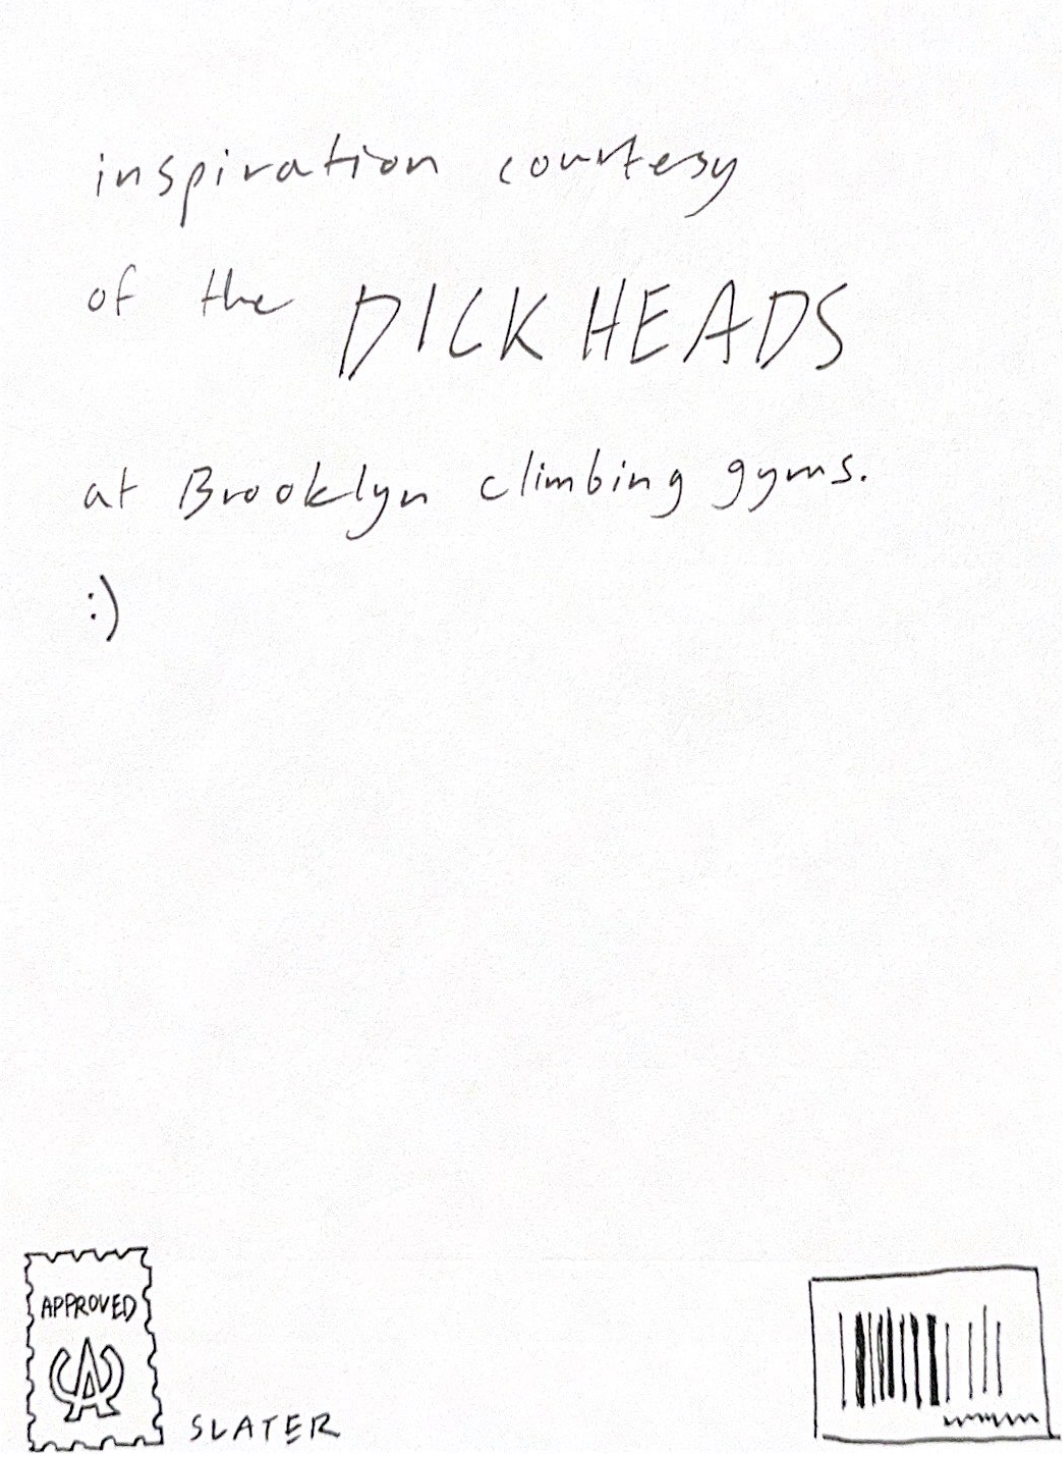 inspiration courtesy
of the DICKHEADS
at Brooklyn climbing gyms.
:)
APPROVED
SLATER